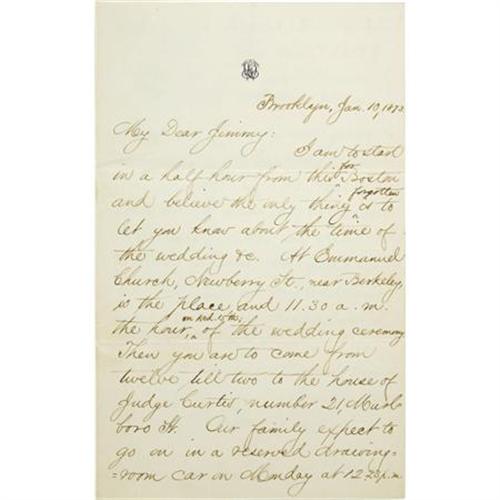 Brooklyn, Jan. 10, 1873.
My Dear Jimmy:
I am to start
in a half hour from this for Boston
and believe the only thing forgotten is to
let you know about the time of
the wedding &c. At Emmanuel
Church, Newberry St., near Berkeley,
is the place and 11.30 a.m.
the hour, of the wedding ceremony
Then you are to come from
twelve till two to the house of
Judge Curtis, number 21, Marl-
boro St. Our family expect to
go on in a reserved drawing-
=room car on Monday at 12 p.m.